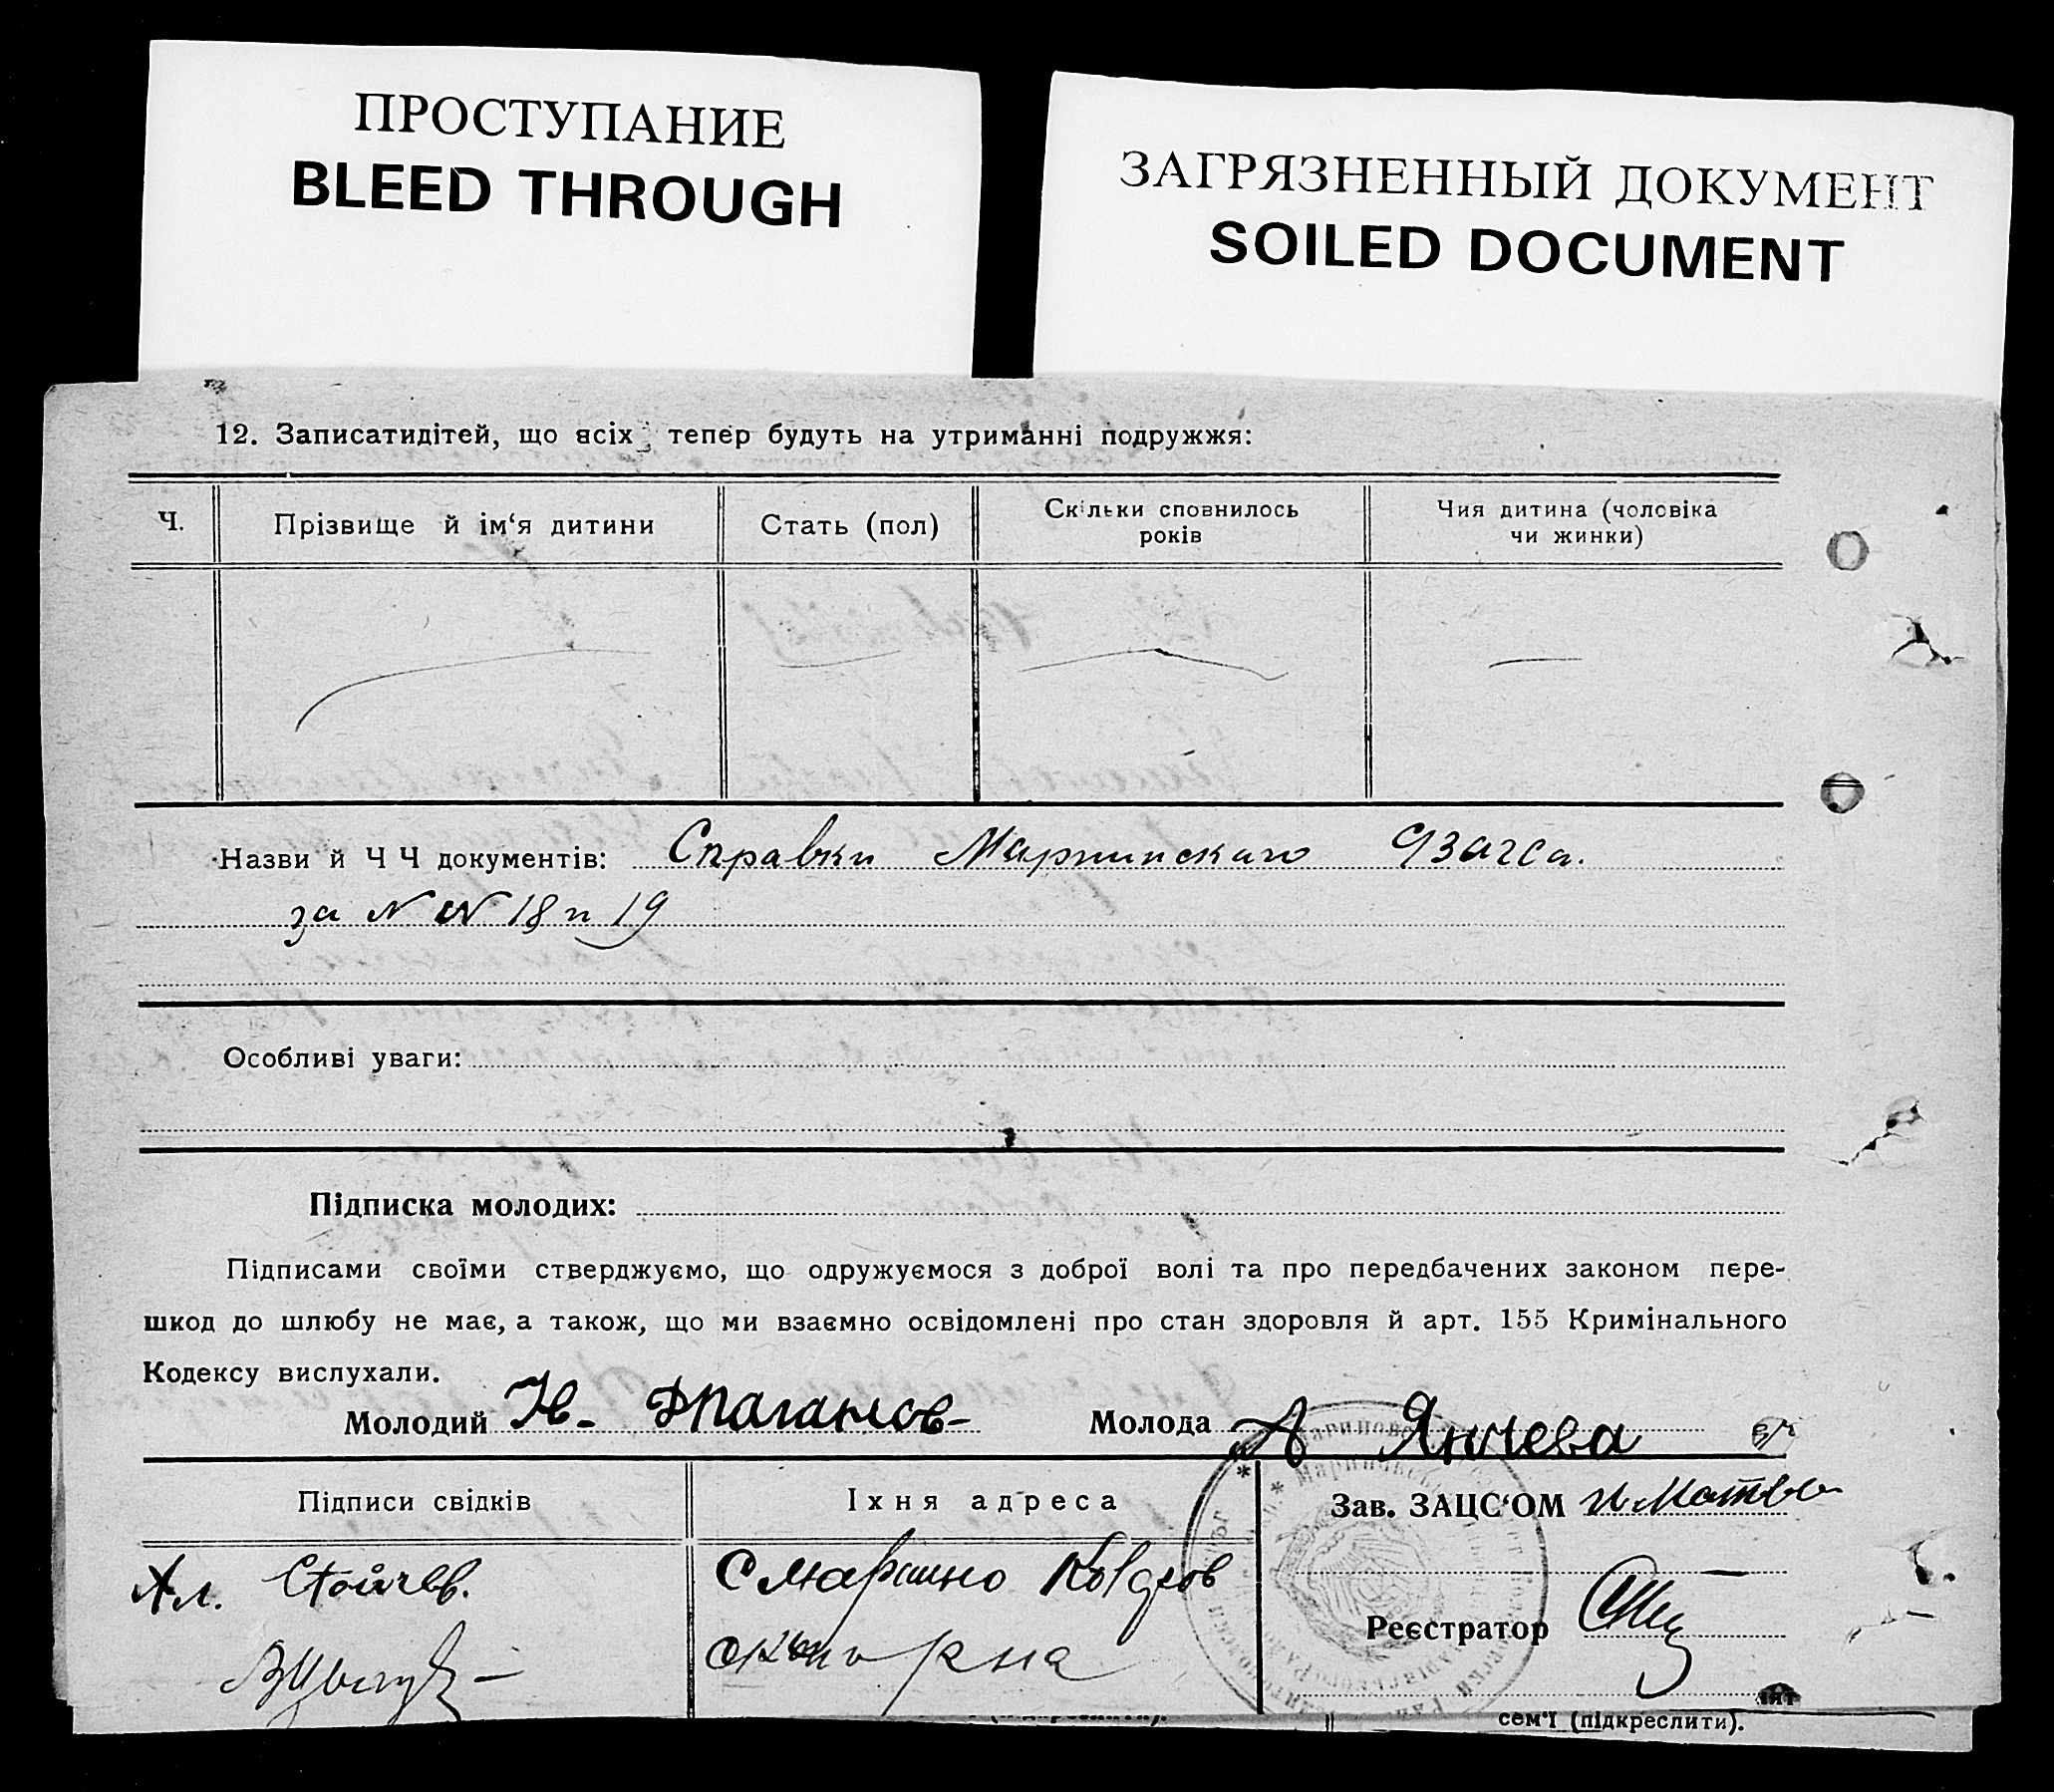 ПРОСТУПАНИЕ
BLEED THROUGH
ЗАГРЯЗНЕННЫЙ ДОКУМЕНТ
SOILED DOCUMENT
12. Записатидітей, що всіх тепер будуть на утриманні подружжя:
Ч.
Прізвище й ім‘я дитини
Стать (пол)
Скільки сповнилось
років
Чия дитина (чоловіка
чи жинки)
Назви й Ч Ч документів: Справки Мариинскаго
за N N 18 и 19
Особливі уваги:
Підписка молодих:
Підписами своїми стверджуємо, що одружуємося з доброї волі та про передбачених законом пере-
шкод до шлюбу не має, а також, що ми взаємно освідомлені про стан здоровля й арт. 155 Кримінального
Кодексу вислухали.
Молодий Н. Драганов
Молода А Янчева
Підписи свідків
Їхня адреса
Зав. ЗАЦС‘ОМ
Ал. Стойчев.
Реєстратор
сем‘ї (підкреслити).